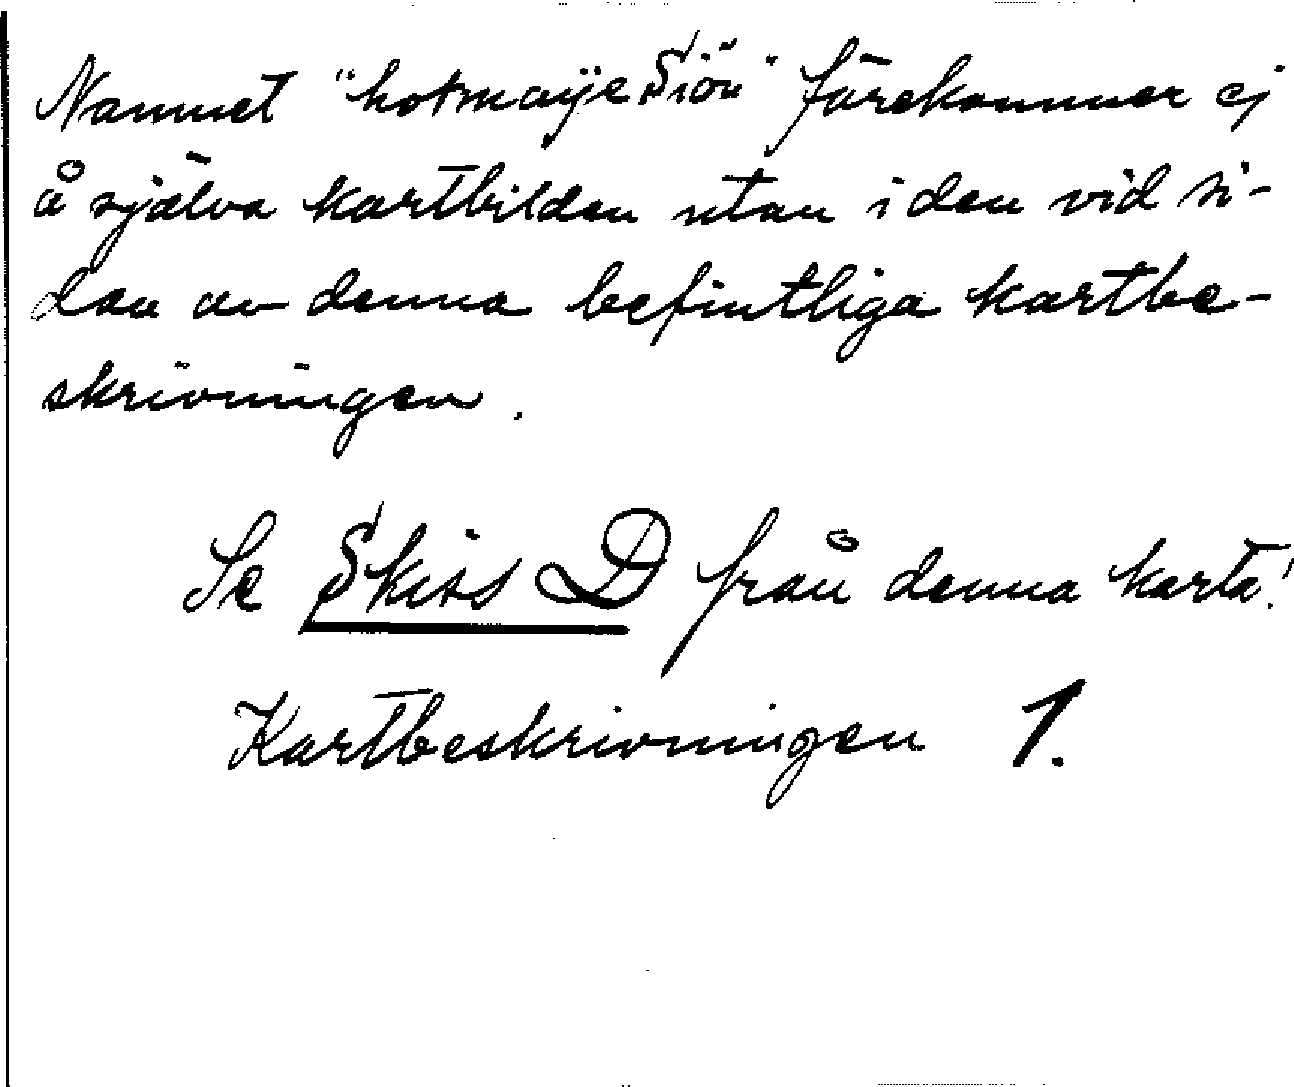 Namnet "hotmaÿe Siön" förekommer ej
å själva kartbilden utan i den vid si-
dan av denna befintliga kartbe-
skrivningen.
Se Skiss D från denna karta!
Kartbeskrivningen 1.